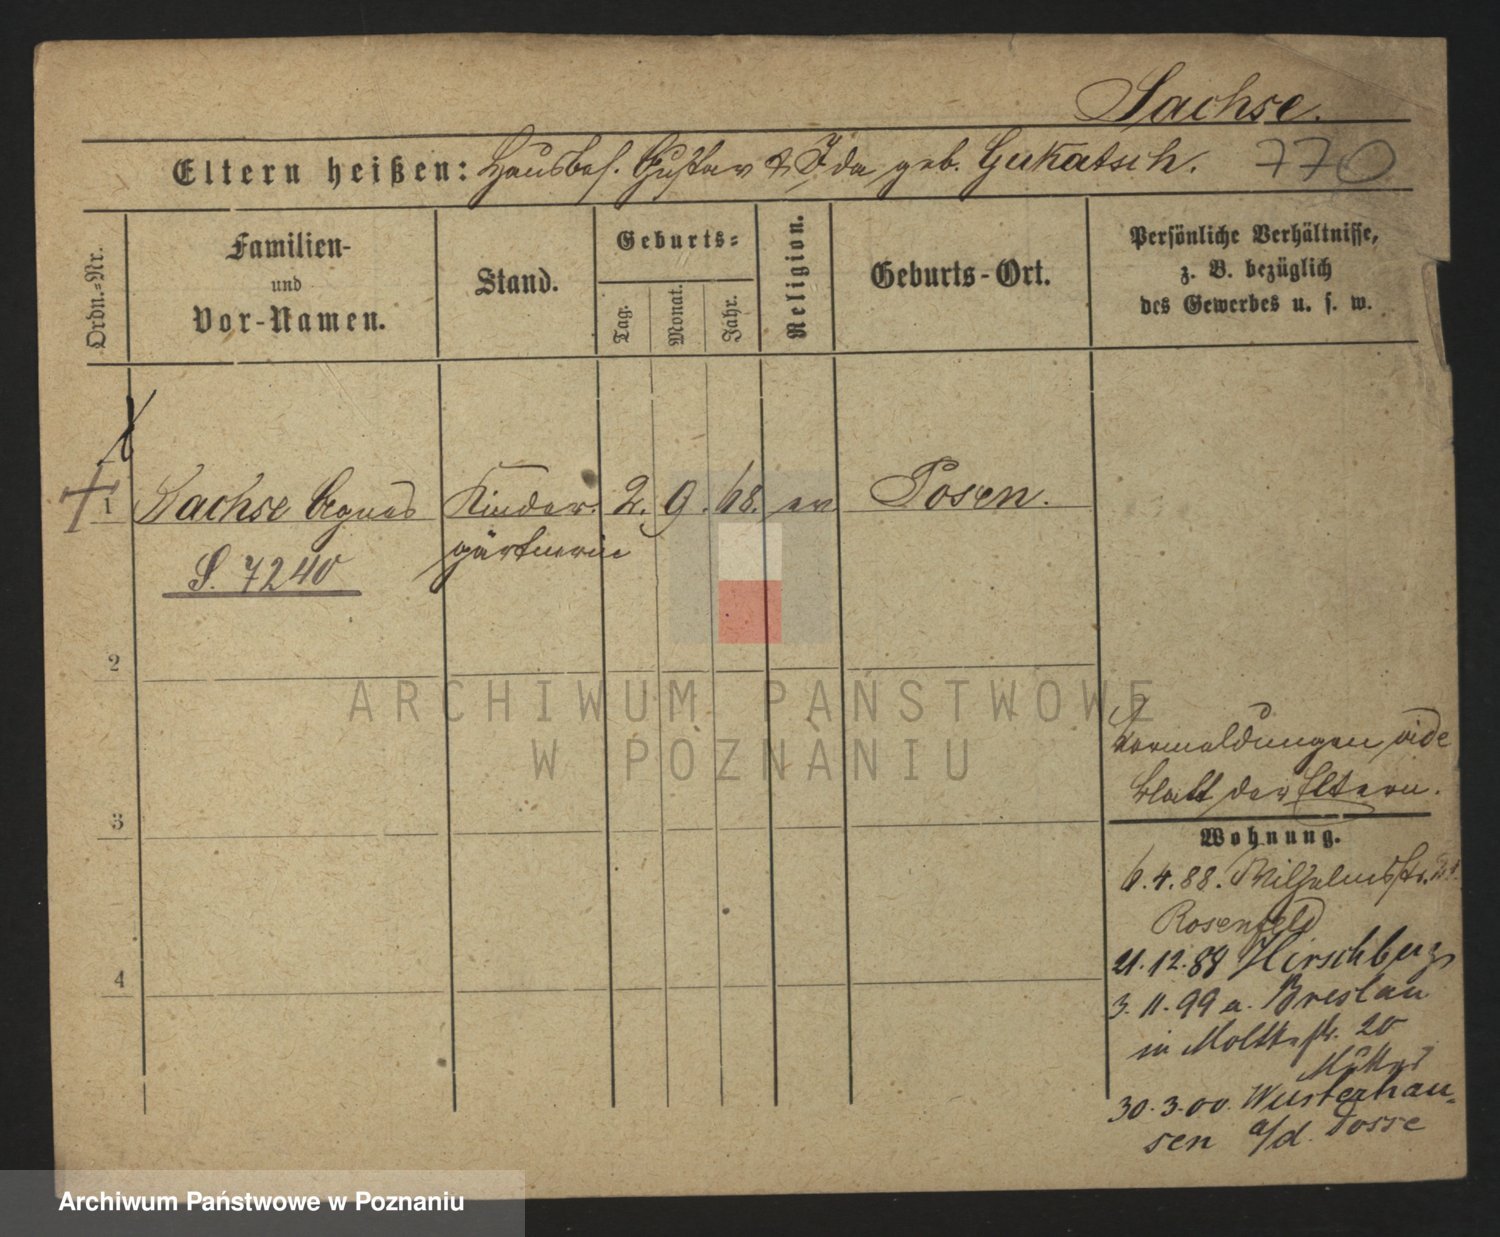 Sachse.
Eltern heißen: Hausbes. Gustav & Ida geb. Gukatsch. 770
Ordn.-Nr.
Familien-
und
Vor-Namen.
Stand.
Geburts-
Tag.
Monat.
Jahr.
Religion.
Geburts-Ort.
Persönliche Verhältnisse,
z. B. bezüglich
des Gewerbes u. s. w.
1 Sachse Agnes Kinder- 2. 9. 68. ev Posen.
gärtnerin
S. 7240
2
3
4
ARCHIWUM PAŃSTWOWE
W POZNANIU
vide
Blatt der Eltern.
Wohnung.
6.4.88. Wilhelmstr.
Rosenfeld
21.12.88 Hirschberg
3.11.99 a. Breslau
in Moltkestr. 20
30.3.00. Wusterhau-
sen a/d. Dosse
Archiwum Państwowe w Poznaniu